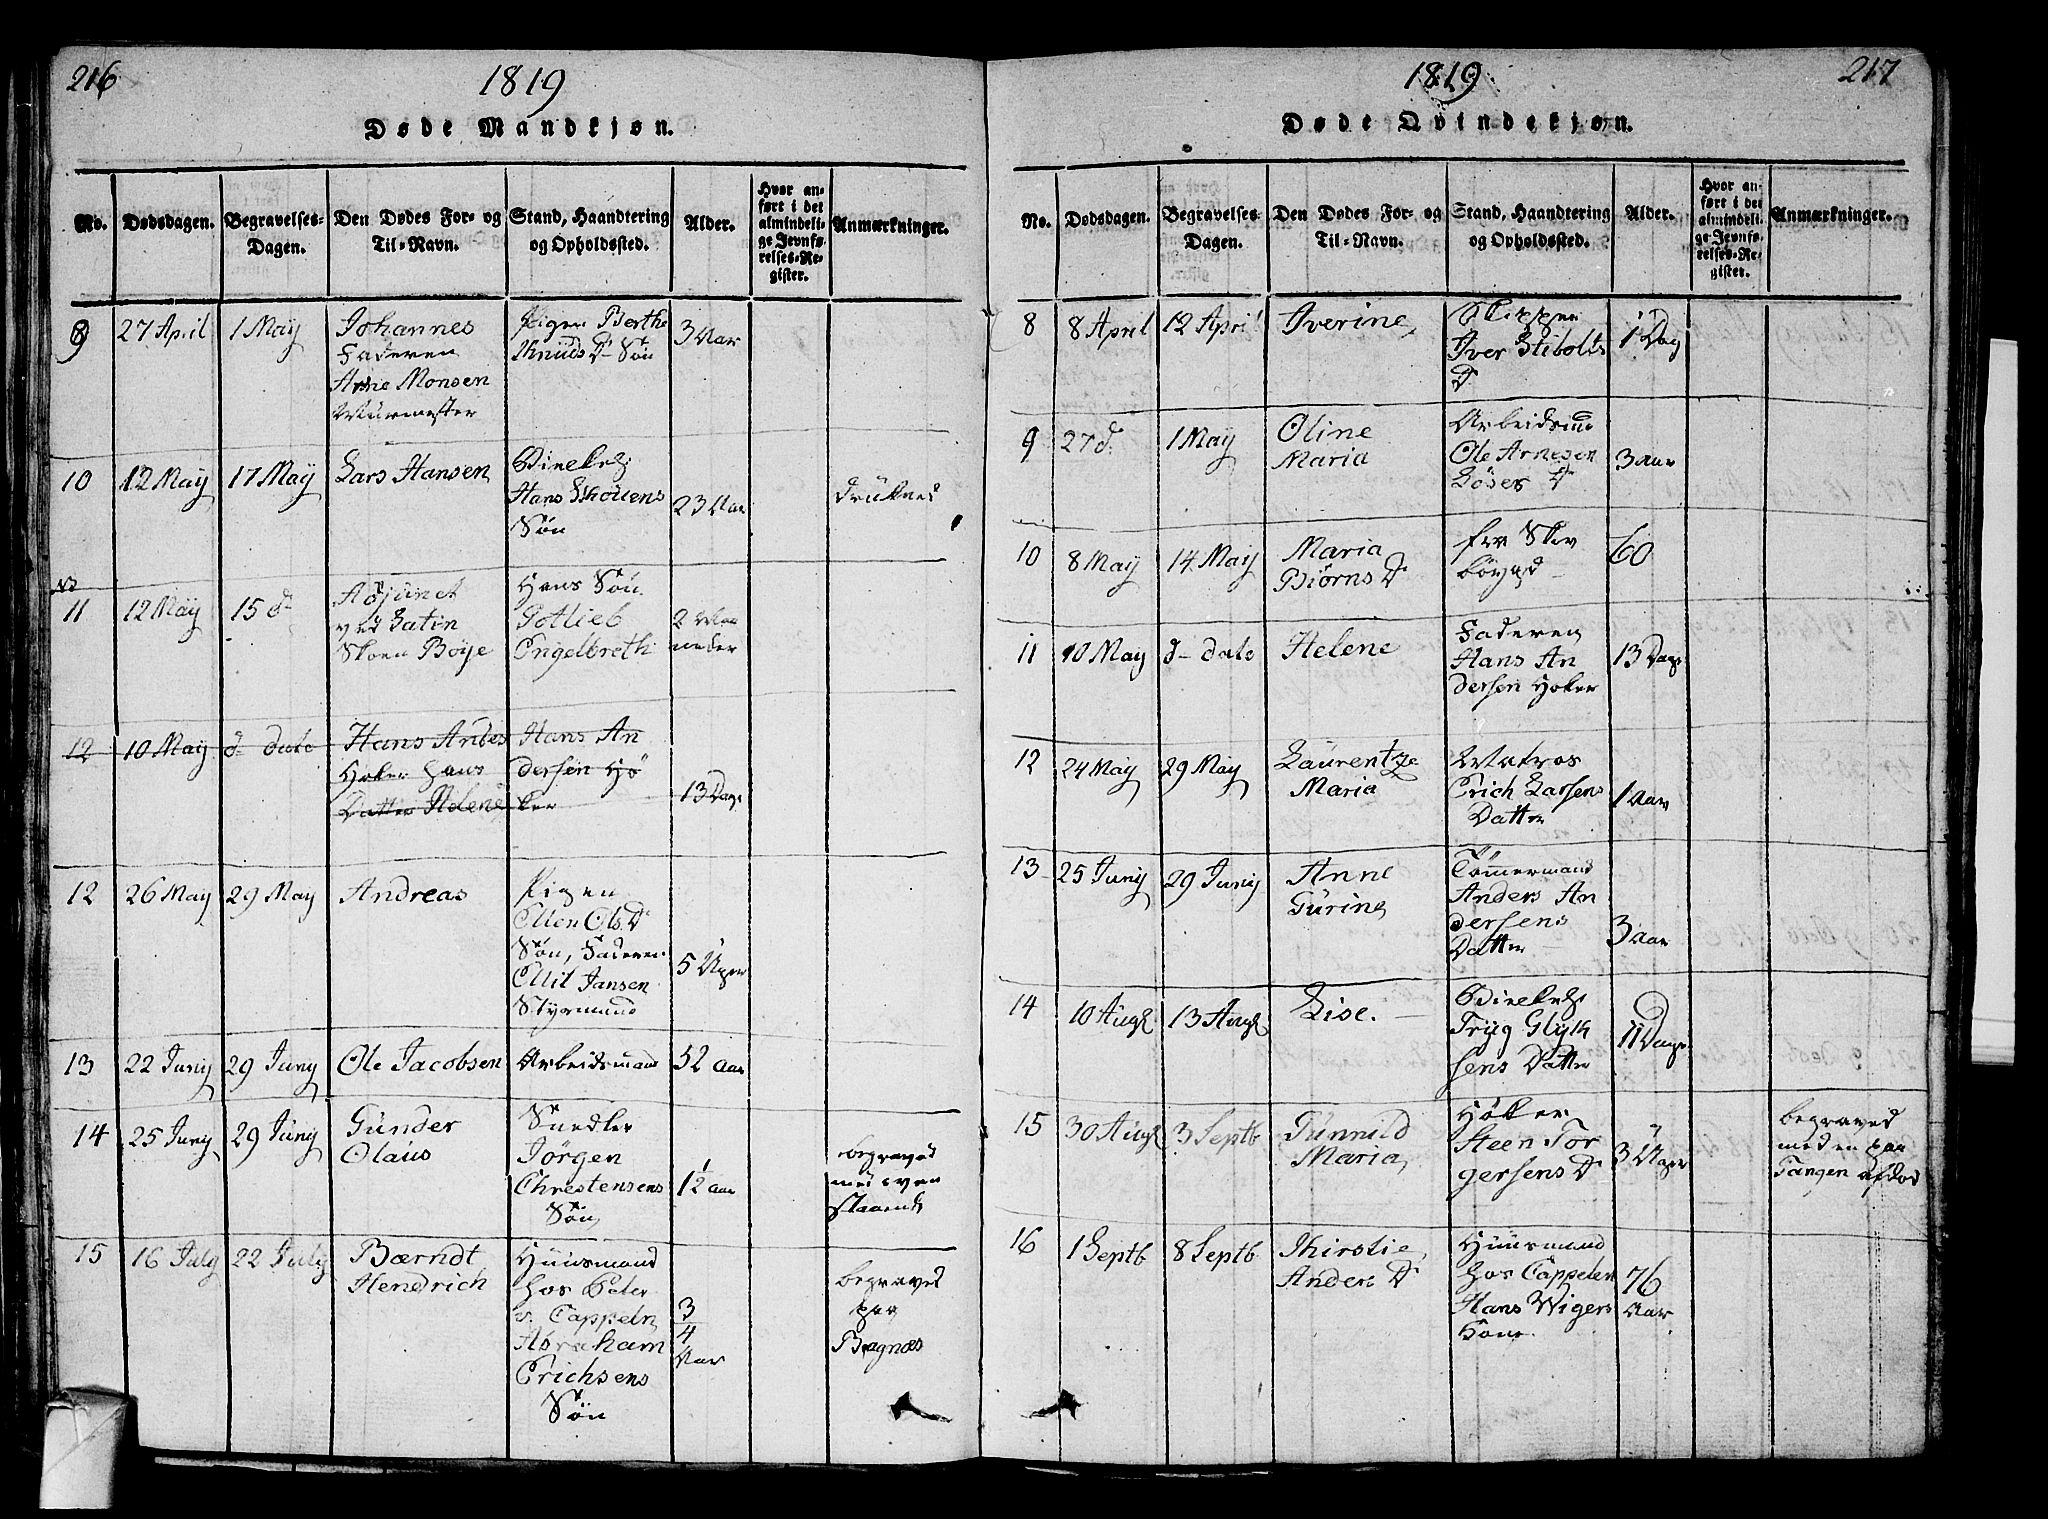 216
1819
Døde Mandkjøn.
No.
Dødsdagen.
Begravelses-
Dagen.
Den Dødes For- og
Til-Navn.
Stand, Haandtering
og Opholdssted.
Alder.
Hvor an-
ført i det
almindeli-
ge Jevnfø-
relses-Re-
gister.
Anmærkninger.
9
27 April
1 May
Johannes
Faderen
Arne Monsen
Muurmester
Pigen Berthe
Knuds D. Søn
3 Aar
10
12 May
17 May
Lars Hansen
Hans Skouens
Søn
23 Aar
druknet
11
12 May
15 d
Adjunct
ved Latin
Skoen Böye
Hans Søn
Gotlieb
Engelbreth
2 Maa
neder
12
10 May
d- dato
Hans Andes
Høker Hans
Datter Helene
Hans An
dersen Hö
ker
13 Dage
12
26 May
29 May
Andreas
Pigen
Ellen Ols D
Søn, Faderen
Ellil Jansen
Styrmand
5 Uger
13
22 Juny
29 Juny
Ole Jacobsen
Arbeidsmand
52 aar
14
25 Juny
29 Juny
Günder
Olaus
Snedker
Jörgen
Chrestensens
Søn
12 aar
begravet
staaende
15
16 July
22 July
Bærndt
Hendrich
Huusmand
hos Peter
v. Cappeln
Abraham
Erichsens
Søn
3
4
Aar
begravet
paa
Bragnæs
1819
217
Døde Qvindekjøn.
No.
Dødsdagen.
Begravelses-
Dagen.
Den Dødes For- og
Til-Navn.
Stand, Haandtering
og Opholdssted.
Alder.
Hvor an-
ført i det
almindeli-
ge Jevnfø-
relses-Re-
gister.
Anmærkninger.
8
8 April
12 April
Iverine
Skipper
Iver Stibolts
D
1 Dag
9
27 d.
1 May
Oline
Maria
Arbeidsm
Ole Arnesen
Löses D
3 aar
10
8 May
14 May
Maria
Biörns D
60
11
10 May
d- dato
Helene
Faderen
Hans An
dersen Høker
13 Dage
12
24 May
29 May
Laurentze
Maria
Matros
Erich Larsens
Datter
1 Aar
13
25 Juny
29 Juny
Anne
Gurine
Tömermand
Anders An
dersens
Datter
3 aar
14
10 Augs
13 Augs
Lise.
Tryg Glyk
sens Datter
11 Dage
15
30 Augs
3 Septb
Gunnild
Maria
Høker
Steen Tor
gersens D
3 Uger
begravet
med en paa
Tangen afdød
16
1 Septb
8 Septb
Thirstie
Anders D
Huusmand
hos Cappelen
Hans Wigers
Kone
76
Aar